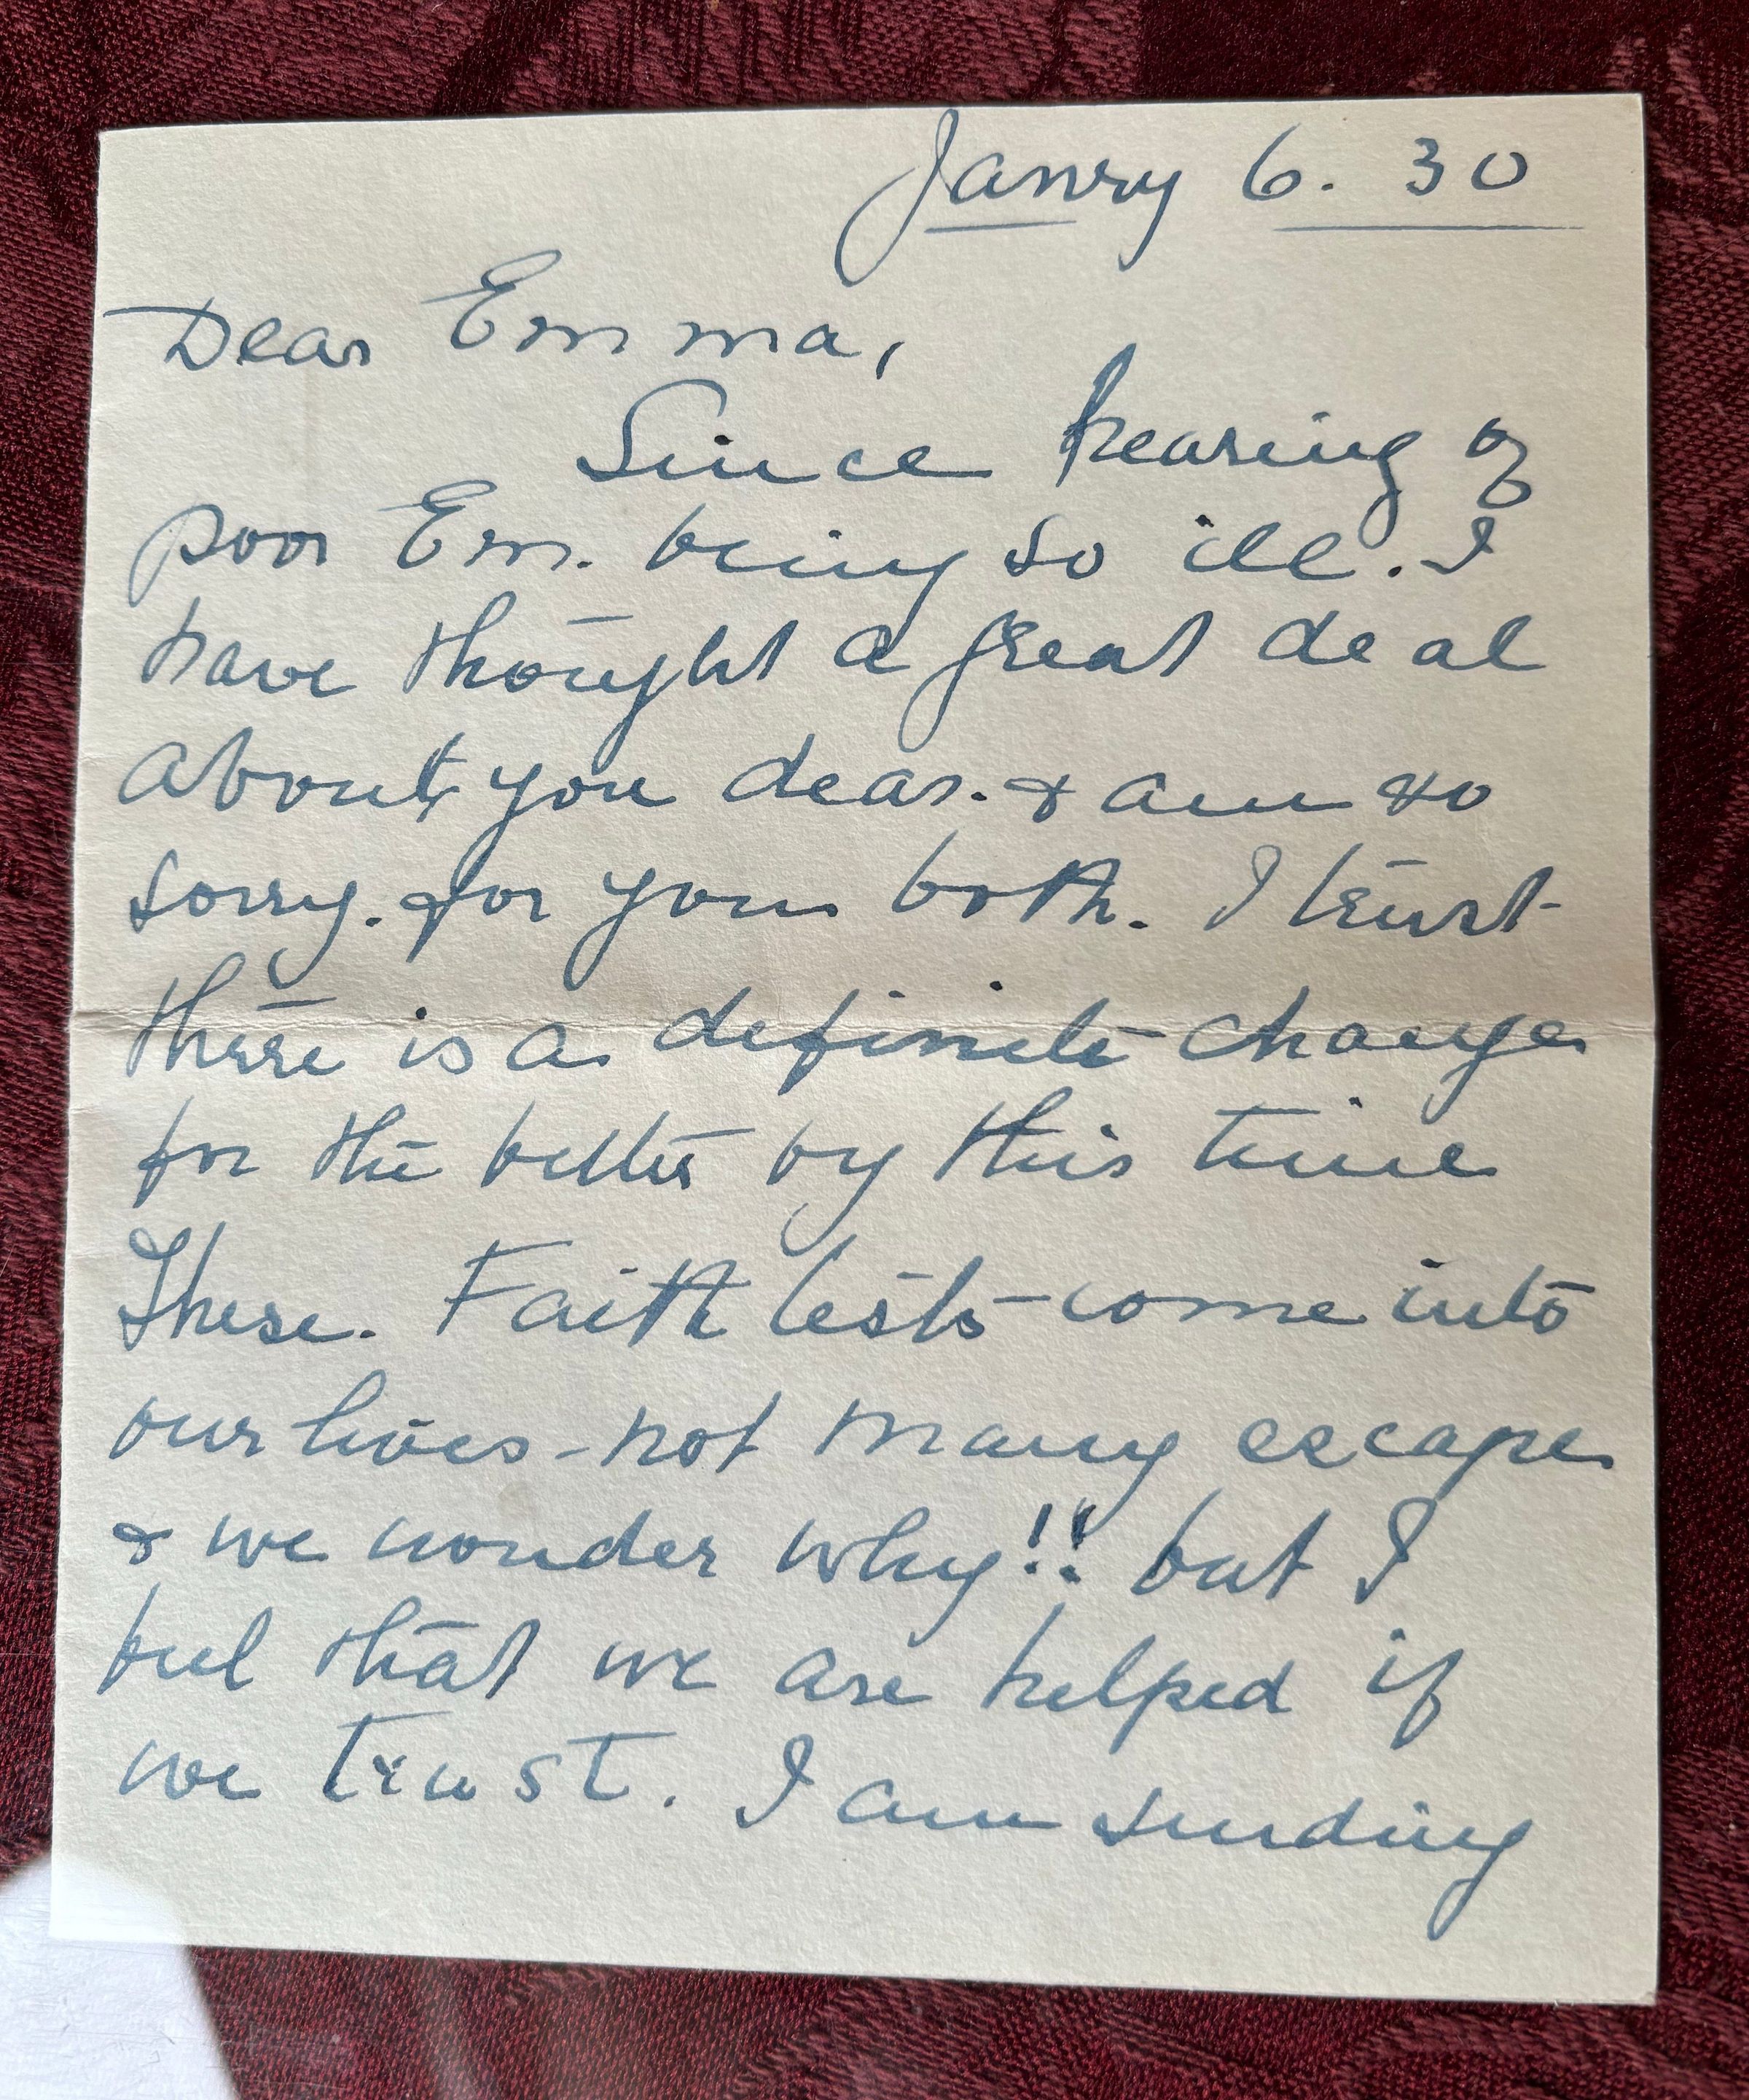 Janry 6. 30
Dear Emma,
Since hearing of
poor Em. being so ill. I
have thought a great deal
about you dear. & am so
sorry. for you both. I trust
there is a definite change
for the better by this time
These. Faith tests - come into
our lives - not many escape
& we wonder why!! but I
feel that we are helped if
we trust. I am sending